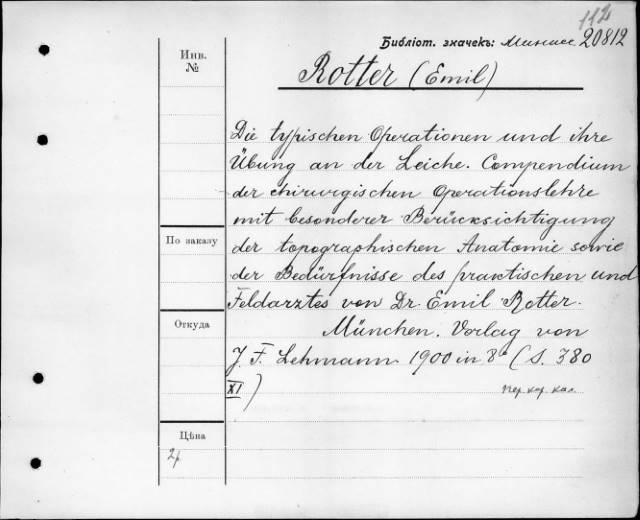 112
Библіот. значекъ: 20812
Инв.
№
Rotter (Emil)
Die typischen Operationen und ihre
Übung an der Leiche. Compendium
der chirurgischen Operationslehre
mit besonderer Berücksichtigung
По заказу
der topographischen Anatomie sowie
der Bedürfnisse des praktischen und
Feldarztes von Dr. Emil Rotter.
Откуда
München. Verlag von
J. F. Lehmann 1900 in 8° (S. 380
XI)
Цѣна
2р